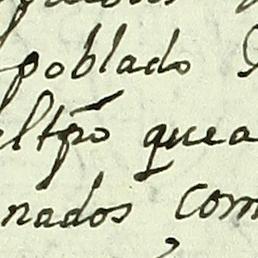 poblado
eltpō que a
nados com